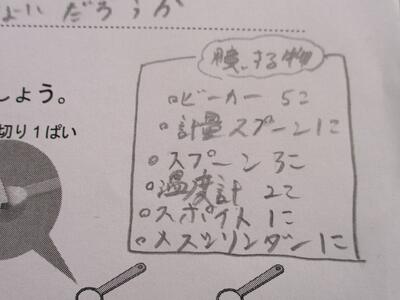 よいだろうか
しょう。
切り1ぱい
要する物
・ビーカー 5こ
・計量スプーン1こ
・スプーン3こ
・温度計 2こ
・スポイト 1こ
・メスシリンダー1こ